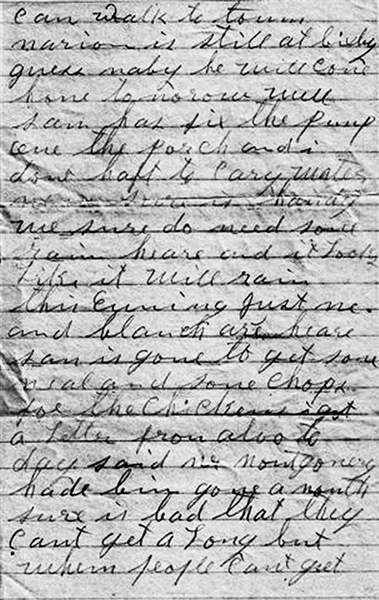 can walk to town
narion is still at bixby
guess naby he will cone
hone tonorow well
sam has fix the pump
one the porch and i
dont haft to cary water
now sure is handy
we sure do need sone
rain heare and it looks
like it will rain
this Evning Just me
and blanch are heare
san is gone to get sone
neal and sone chops
for the chickens i got
a letter fron aloo to
day said nr nontgonery
hade bin gone a nonth
sure is bad that they
cant get a Long but
whem people cant get